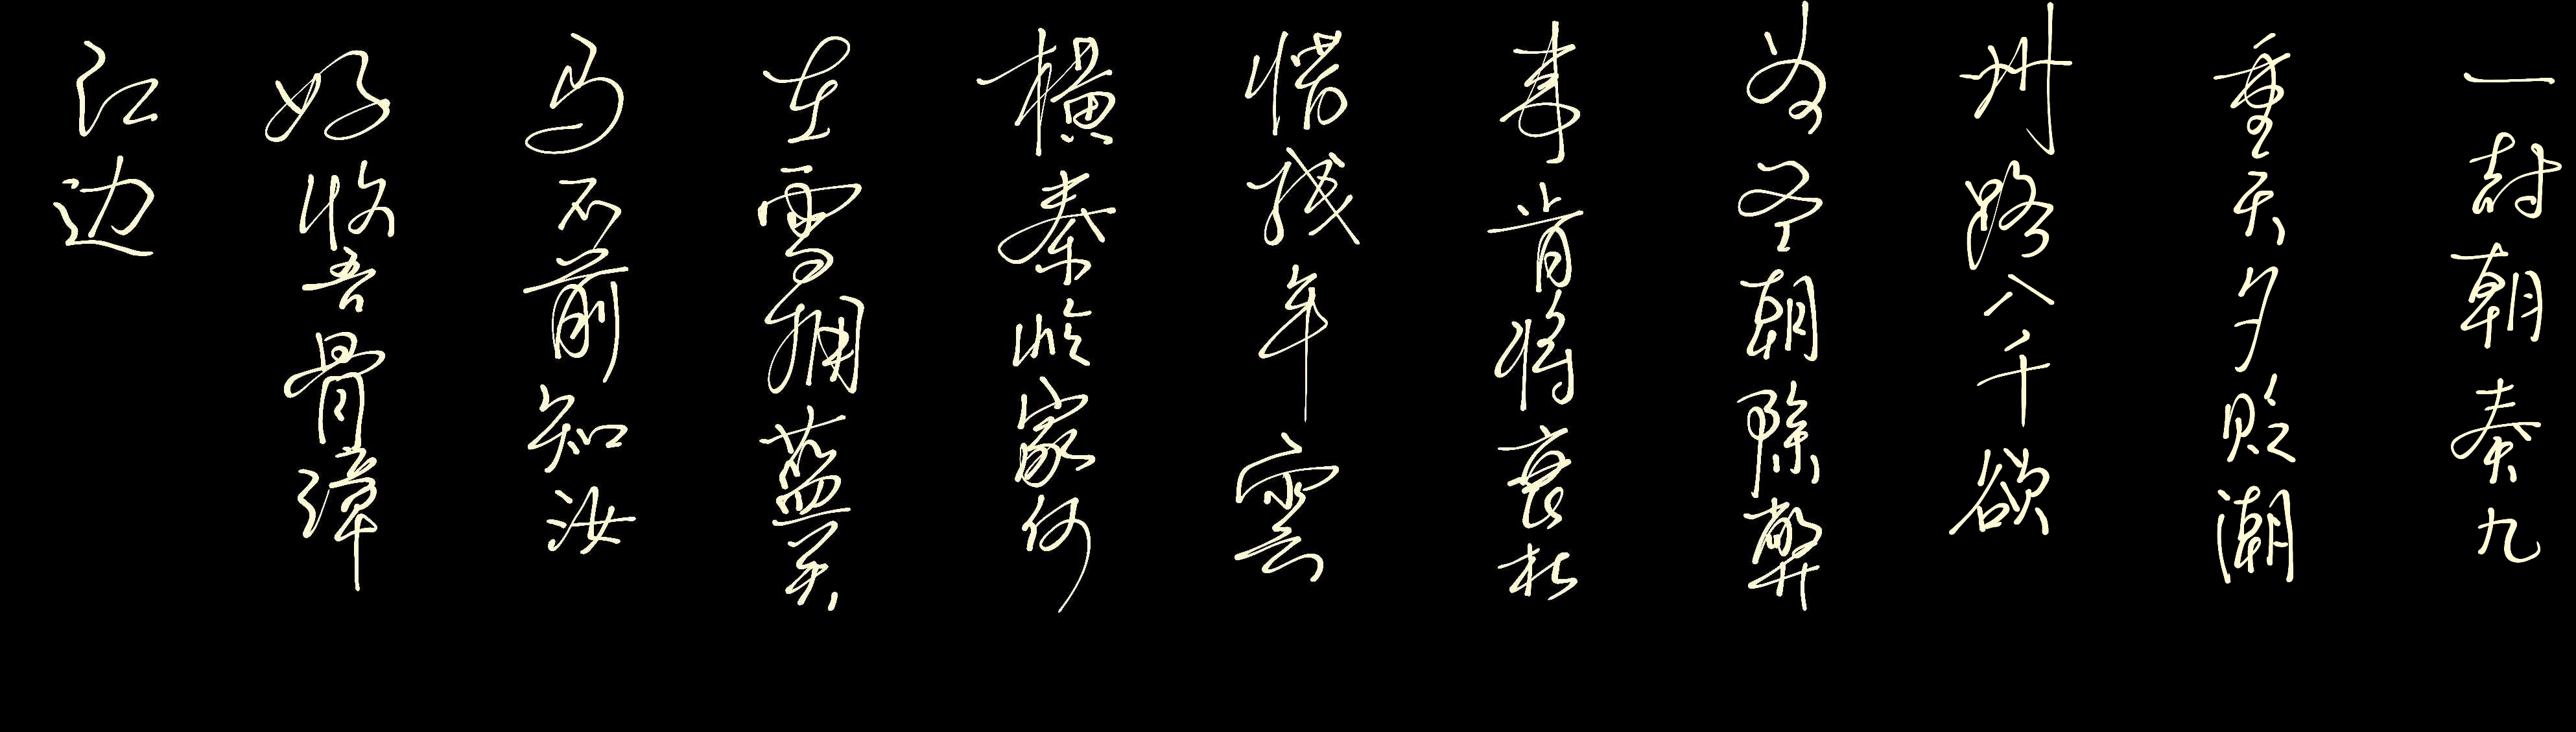 一封朝奏九
重天夕贬潮
州路八千欲
为圣朝除弊
事肯将衰朽
惜残年雲
横秦岭家何
在雪拥蓝关
马不前知汝
好收吾骨漳
江边